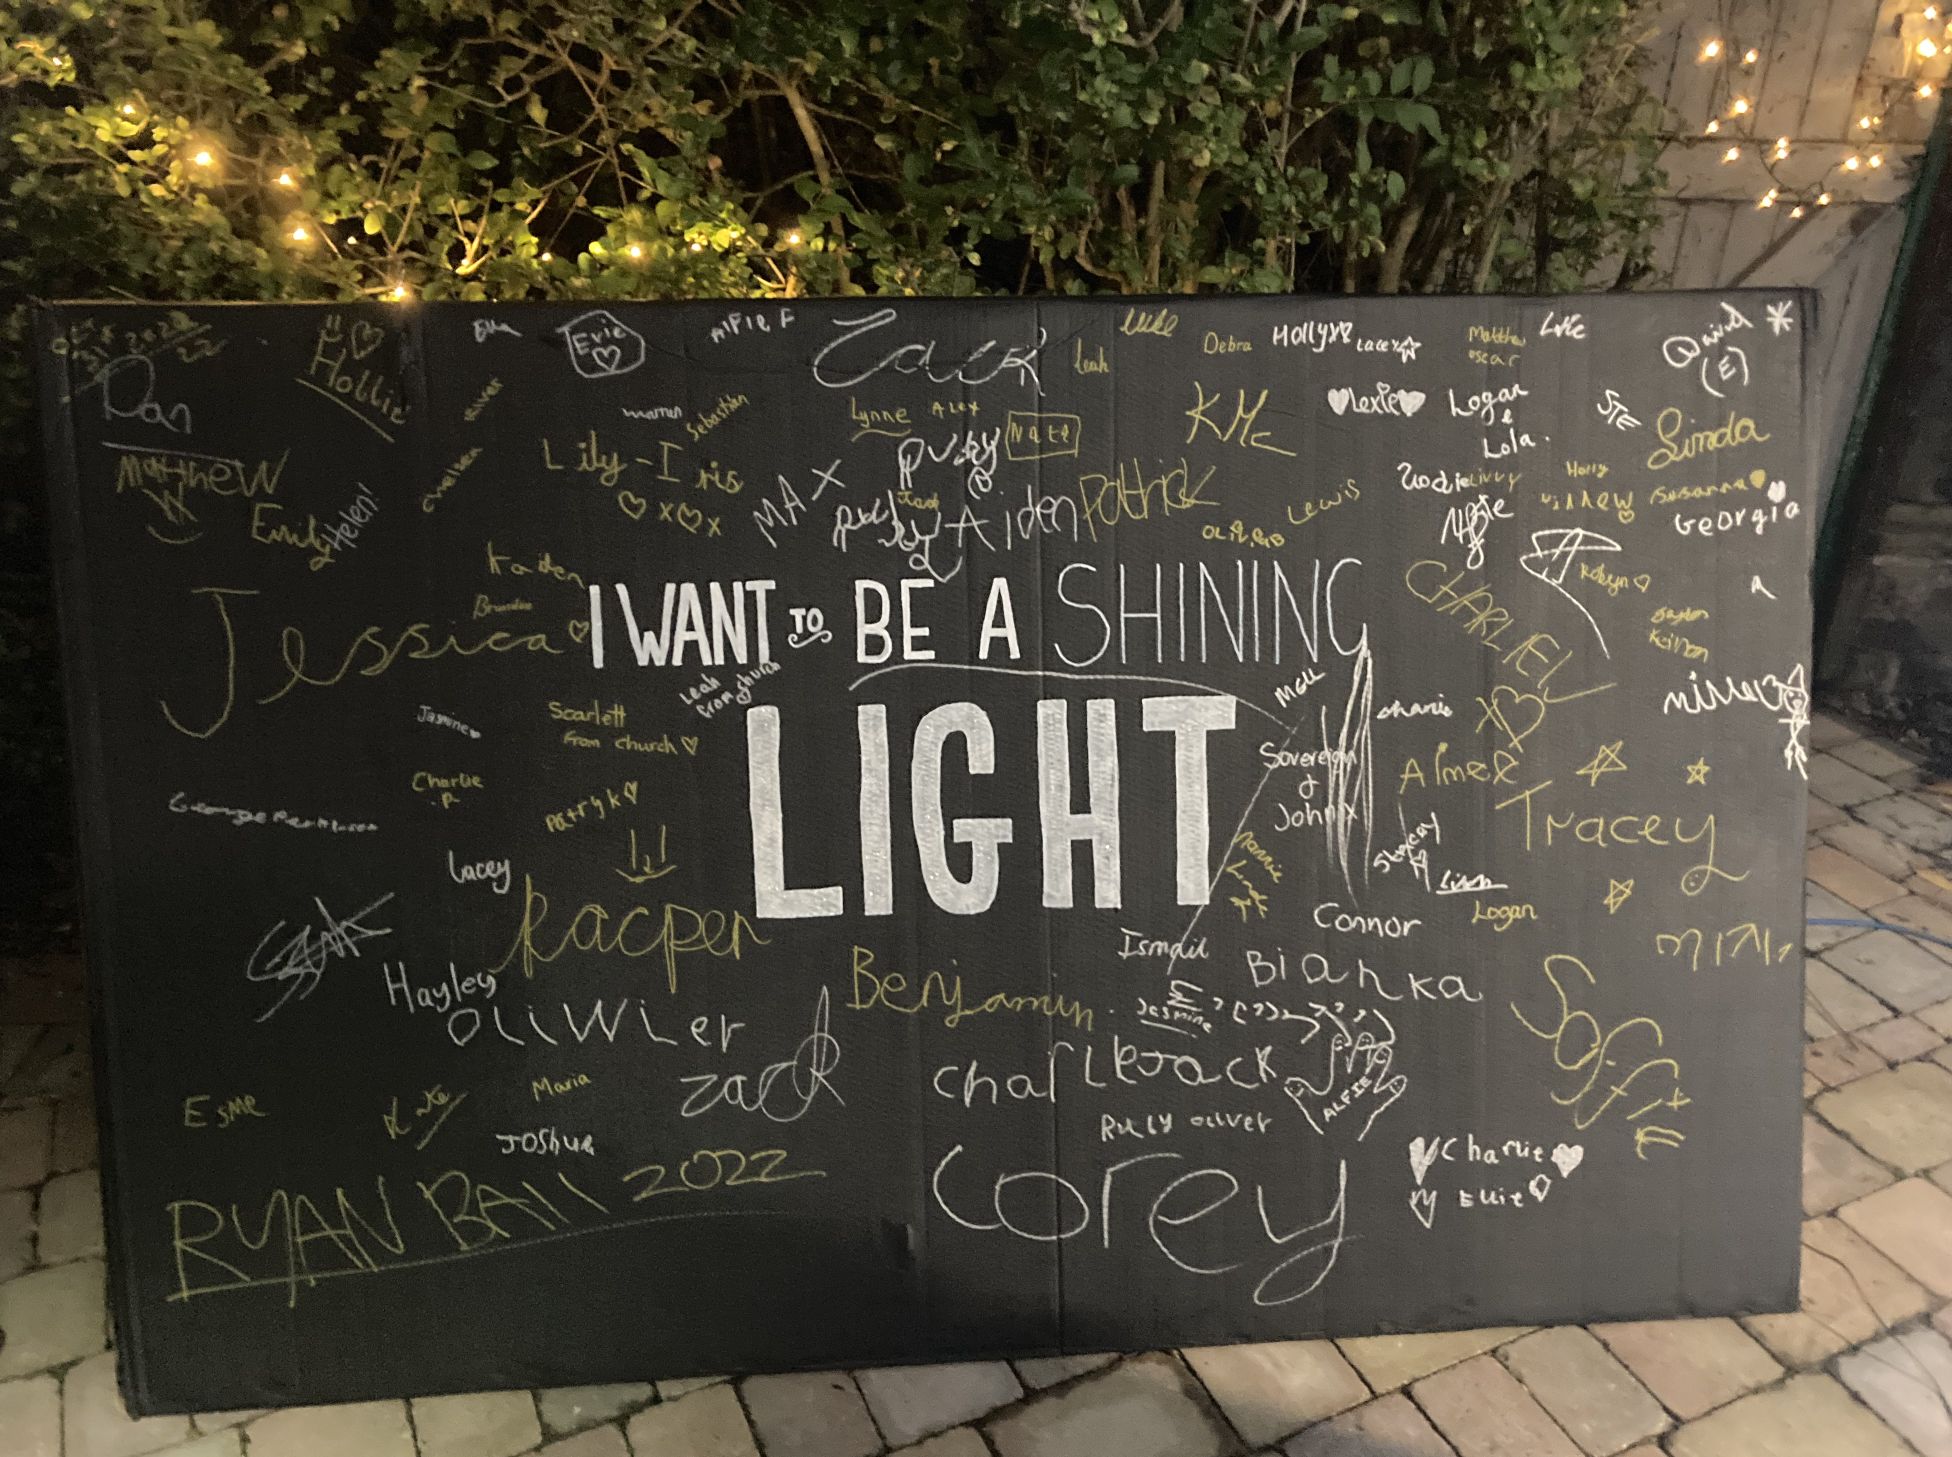 Hollie
Ella
Evie
AlFie F
Zack
Luke
leah
Debra
Hollyx
Lacey
Matthew
oscar
David
(E)
Dan
River
warren
Sebastian
Lynne
Alex
Nate
KMc
Lexie
Logan
&
Lola.
STE
Linda
Matthew
Emily
Helen!
Chelsea
Lily-Iris
x x
MAX
Ruby
Aiden
Patrick
Lewis
Livvy
Holly
Susanna
Georgia
Alfie
Kaiden
Robyn
I WANT TO BE A SHINING
LIGHT
Jessica
Brandon
CHARLIE
Jasmine
Scarlett
From church
Leah
From church
Sovereign
&
John x
Tracey
Charlie
.P
Patryk
George Parkinson
Lacey
Kacper
Connor
Logan
Ismail
Bianka
Hayley
OLiWiер
Benjamin
Jasmine
Sofie
Esme
Maria
zack
Charlie Jack
ALFIE
Joshua
Ruby oliver
RYAN BAll 2022
Corey
Charlie
Ellie